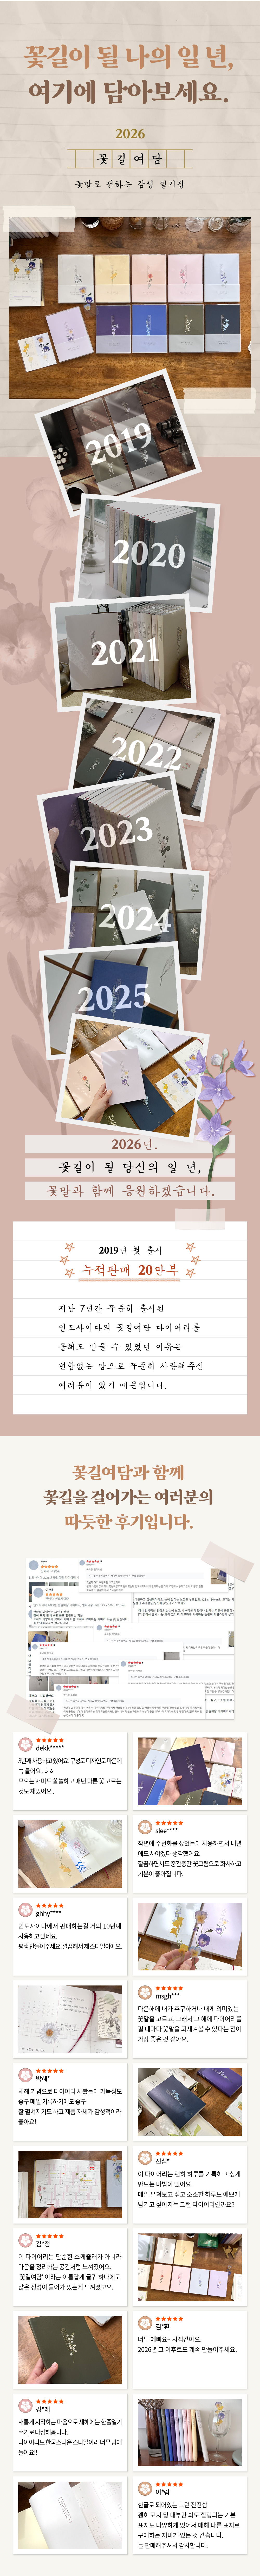 꽃길이 될 나의 일 년,
여기에 담아보세요.
2026
꽃길여담
꽃말로 전하는 감성 일기장
2019
2020
2021
2022
2023
2024
2025
2026년.
꽃길이 될 당신의 일 년,
꽃말과 함께 응원하겠습니다.
2019년 첫 출시
누적판매 20만부
지난 7년간 꾸준히 출시된
인도사이다의 꽃길여담 다이어리를
올해도 만들 수 있었던 이유는
변함없는 맘으로 꾸준히 사랑해주신
여러분이 있기 때문입니다.
꽃길여담과 함께
꽃길을 걸어가는 여러분의
따듯한 후기입니다.
dekk*****
3년째 사용하고 있어요! 구성도 디자인도 마음에
쏙 들어요. ㅎㅎ
모으는 재미도 쏠쏠하고 매년 다른 꽃 고르는
것도 재밌어요.
slee****
작년에 수선화를 샀었는데 사용하면서 내년
에도 사야겠다 생각했어요.
깔끔하면서도 중간중간 꽃그림으로 화사하고
기분이 좋아집니다.
ghhy****
인도사이다에서 판매하는걸 거의 10년째
사용하고 있네요.
평생 만들어주세요! 깔끔해서 제 스타일이에요.
msgh***
다음해에 내가 추구하거나 내게 의미있는
꽃말을 고르고, 그래서 그 해에 다이어리를
펼 때마다 꽃말을 되새겨볼 수 있다는 점이
가장 좋은 것 같아요.
박혜*
새해 기념으로 다이어리 사봤는데 가독성도
좋구 매일 기록하기에도 좋구
잘 펼쳐지기도 하고 제품 자체가 감성적이라
좋아요!
진심*
이 다이어리는 괜히 하루를 기록하고 싶게
만드는 마법이 있어요.
매일 펼쳐보고 싶고 소소한 하루도 예쁘게
남기고 싶어지는 그런 다이어리랄까요?
김*정
이 다이어리는 단순한 스케줄러가 아니라
마음을 정리하는 공간처럼 느껴졌어요.
'꽃길여담' 이라는 이름답게 글귀 하나에도
많은 정성이 들어가 있는게 느껴졌고요.
김*환
너무 예뻐요~ 시집같아요.
2026년 그 이후로도 계속 만들어주세요.
강*래
새롭게 시작하는 마음으로 새해에는 한줄일기
쓰기로 다짐해봅니다.
다이어리도 한국스러운 스타일이라 너무 맘에
들어요!!
이*람
한글로 되어있는 그런 잔잔함
괜히 표지 및 내부만 봐도 힐링되는 기분
표지도 다양하게 있어서 매해 다른 표지로
구매하는 재미가 있는 것 같습니다.
늘 판매해주셔서 감사합니다.